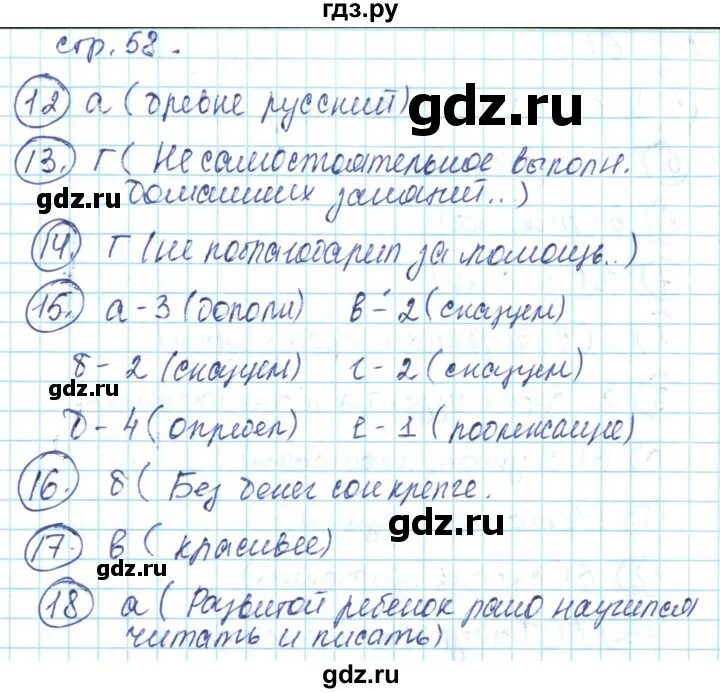 гдз.ру
стр. 58.
12 а (древне русский) gdz.ru
13. г (Не самостоятельное выполн.
gdz.ru домашних заданий..)
14. г (не поблагодарил за помощь..)
15. а - 3 (дополн) в - 2 (сказуем)
б - 2 (сказуем) г - 2 (сказуем)
gdz.ru
д - 4 (определ) е - 1 (подлежащие)
16. б (Без денег сон крепче.
gdz.ru
17. в (красивее)
gdz.ru
18 а (Развитой ребенок рано научился
читать и писать)
gdz.ru